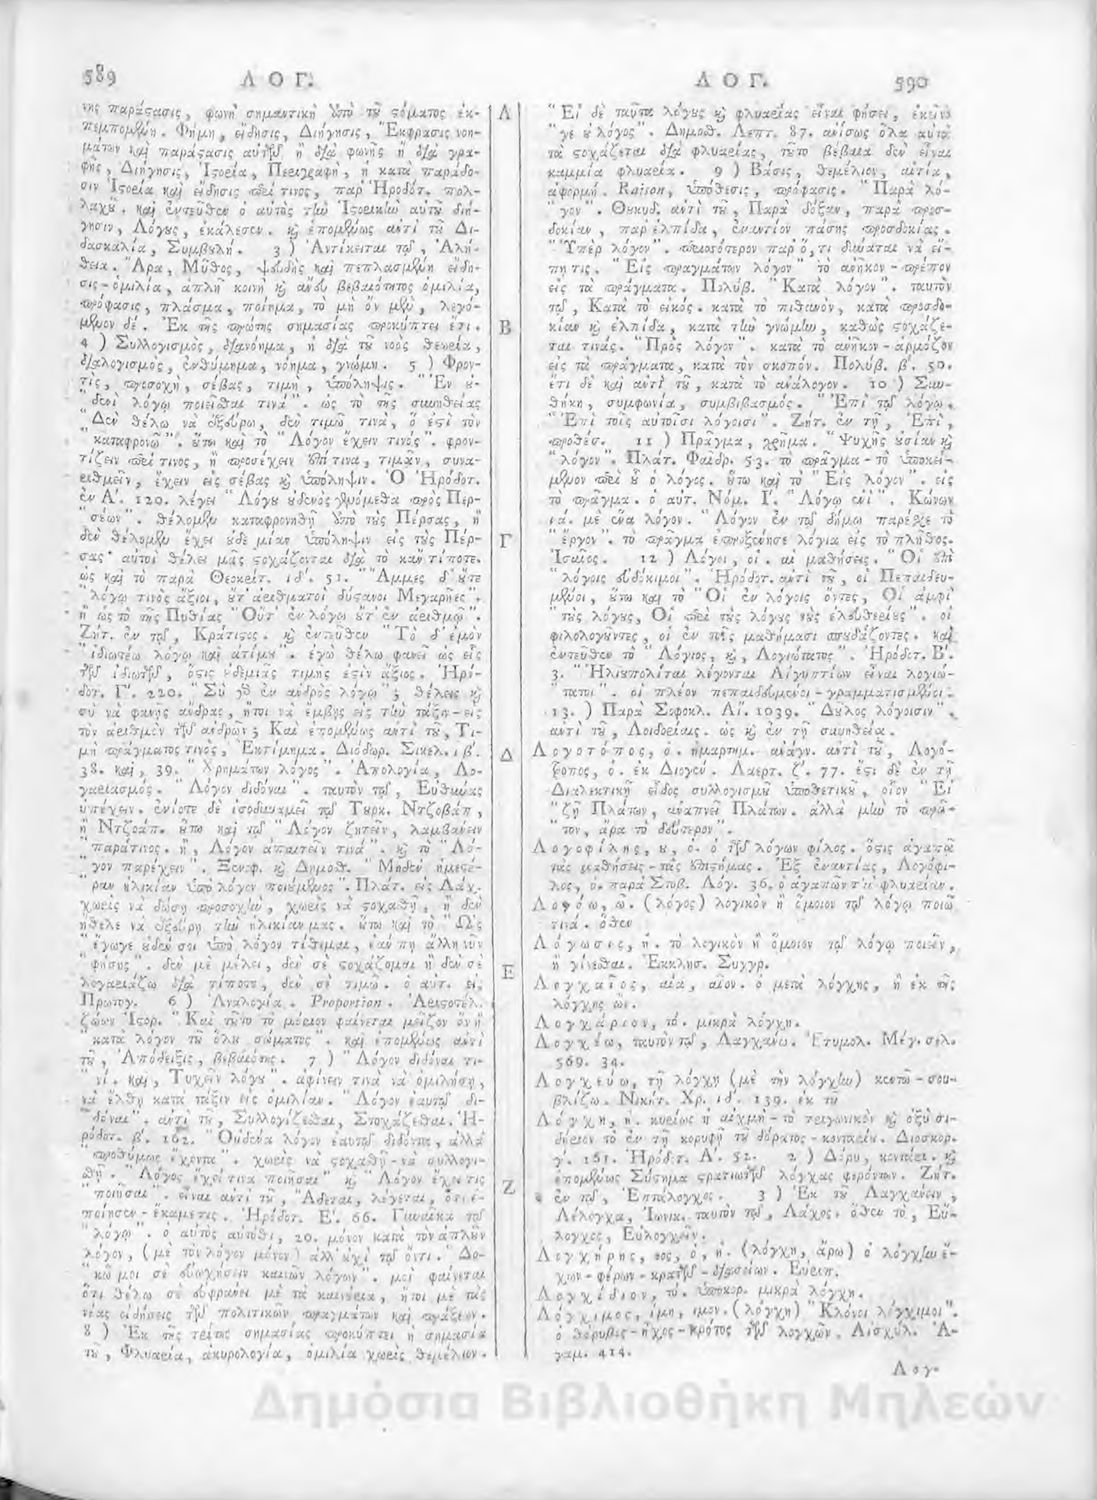 589 ΛΟΓ.
νης παράστασις, φωνὴ σημαντικὴ ὑπὸ τοῦ στόματος ἐκ-
πεμπομένη. Φήμη, εἴδησις, Διήγησις, Ἔκφρασις νοη-
μάτων καὶ παράστασις αὐτῶν ἢ διὰ φωνῆς ἢ διὰ γρα-
φῆς, Διήγησις, Ἱστορία, Περιγραφὴ, ἢ κατὰ παράδο-
σιν Ἱστορία καὶ εἴδησις περί τινος, παρ' Ἡροδότ. πολ-
λαχοῦ. καὶ ἐντεῦθεν ὁ αὐτὸς τὴν Ἱστορικὴν αὐτοῦ διή-
γησιν, Λόγους, ἐκάλεσεν. καὶ ἑπομένως αντὶ τοῦ Δι-
δασκαλία, Συμβουλή. 3 ) Ἀντίκειται τῷ, Ἀλή-
θεια. Ἄρα, Μῦθος, ψευδὴς καὶ πεπλασμένη εἴδη-
σις - ὁμιλία, ἁπλῆ κοινὴ καὶ ἄνευ βεβαιότητος ὁμιλία,
πρόφασις, πλάσμα, ποίημα, τὸ μὴ ὂν μὲν, λεγό-
μενον δέ. Ἐκ τῆς πρώτης σημασίας προκύπτει ἔτι.
4 ) Συλλογισμὸς, διανόημα, ἡ διὰ τοῦ νοὸς θεωρία,
διαλογισμὸς, ἐνθύμημα, νόημα, γνώμη. 5 ) Φρον-
τὶς, προσοχὴ, σέβας, τιμὴ, ὑπόληψις. " Ἐν οὐ-
" δενὶ λόγῳ ποιεῖσθαι τινὰ". ὡς τὸ τῆς συνηθείας
" Δὲν θέλω νὰ ἐξεύρω, δὲν τιμῶ τινὰ, ὅ ἐστὶ τὸν
" καταφρονῶ". οὕτω καὶ τὸ " Λόγον ἔχειν τινός". φρον-
τίζειν περί τινος, ἢ προσέχειν ἐπί τινα, τιμᾶν, συνα-
ριθμεῖν, ἔχειν εἰς σέβας καὶ ὑπόληψιν. Ὁ Ἡρόδοτ.
ἐν Α'. 120. λέγει " Λόγου οὐδενὸς γινόμεθα πρὸς Περ-
" σέων". θέλομεν καταφρονηθῆ ὑπὸ τοὺς Πέρσας, ἢ
δὲν θέλομεν ἔχει οὐδὲ μίαν ὑπόληψιν εἰς τοὺς Πέρ-
σας· αὐτοὶ θέλει μᾶς στοχάζονται διὰ τὸ κᾂν τίποτε.
ὡς καὶ τὸ παρὰ Θεοκρίτ. ιδ'. 51. " Ἄμμες δ' οὔτε
" λόγῳ τινὸς ἄξιοι, οὔτ' ἀριθματοὶ δύστανοι Μεγαρῆες".
ἢ ὡς τὸ τῆς Πυθίας " Οὔτ' ἐν λόγῳ οὔτ' ἐν ἀριθμῷ".
Ζήτ. ἐν τῷ, Κράτιστος. καὶ ἐντεῦθεν " Τὸ δ' ἐμὸν
" ἰδιωτέω λόγῳ καὶ ἀτίμου". ἐγὼ θέλω φανεῖ ὡς εἷς
τῶν ἰδιωτῶν, ὅστις οὐδεμίας τιμῆς ἐστὶν ἄξιος. Ἡρό-
δοτ. Γ'. 120. " Σὺ γὰρ ἐν ἀνδρὸς λόγῳ"; θέλεις καὶ
σὺ νὰ φανῇς ἄνδρας, ἤτοι νὰ ἔμβῃς εἰς τὴν τάξιν - εἰς
τὸν ἀριθμὸν τῶν ἀνδρῶν; Καὶ ἑπομένως αντὶ τοῦ, Τι-
μὴ πράγματος τινὸς, Ἐκτίμημα. Διόδωρ. Σικελ. ιβ'.
38. καὶ, 39. " Χρημάτων λόγος". Ἀπολογία, Λο-
γαριασμός. " Λόγον διδόναι". ταυτὸν τῷ, Εὐθύνας
ὑπέχειν. ἐνίοτε δὲ ἰσοδυναμεῖ τῷ Τουρκ. Ντζοβὰπ,
ἢ Ντζοάπ. οὕτω καὶ τῷ " Λόγον ζητεῖν, λαμβάνειν
" παράτινος. ἢ, Λόγον ἀπαιτεῖν τινὰ". καὶ τὸ " Λό-
" γον παρέχειν". Ξενοφ. καὶ Δημοσθ. " Μηδὲν ἡμετέ-
" ραν ἡλικίαν ὑπὸ λόγον ποιούμενος". Πλάτ. εἰς Λάχ.
χωρὶς νὰ δώσῃ προσοχὴν, χωρὶς νὰ στοχασθῇ, ἢ δὲν
ἤθελε νὰ ἐξεύρῃ τὴν ἡλικίαν μας. οὕτω καὶ τὸ " Ὡς
" ἔγωγε οὐδέν σοι ὑπὸ λόγον τίθεμαι, ἐάν πη ἄλλη νῦν
" φήσῃς". δὲν μὲ μέλει, δὲν σὲ στοχάζομαι ἢ δὲν σὲ
λογαριάζω διὰ τίποτε, δὲν σὲ τιμῶ. ὁ αὐτ. εἰς
Πρωταγ. 6 ) Ἀναλογία. Proportion. Ἀριστοτέλ.
ζώων Ἱστορ. " Καὶ τοῦτο τὸ μόριον φαίνεται μεῖζον ὂν ἢ
" κατὰ λόγον τοῦ ὅλου σώματος". καὶ ἑπομένως αντὶ
τοῦ, Ἀπόδειξις, βεβαιότης. 7 ) " Λόγον διδόναι τι-
" νὶ. καὶ, Τυχεῖν λόγου". ἀφίνειν τινὰ νὰ ὁμιλήσῃ,
νὰ ἔλθῃ κατὰ τάξιν εἰς ὁμιλίαν. " Λόγον ἑαυτῷ δι-
" δόναι". αντὶ τοῦ, Συλλογίζεσθαι, Στοχάζεσθαι. Ἡ-
ρόδοτ. β'. 162. " Οὐδένα λόγον ἑαυτῷ διδόντα, ἀλλὰ
" προθύμως ἔχοντα". χωρὶς νὰ στοχασθῇ - νὰ συλλογι-
σθῇ. " Λόγος ἔχει τινὰ ποιῆσαι" καὶ " Λόγον ἔχει τις
" ποιῆσαι". εἶναι αντὶ τοῦ, Ἄδεται, λέγεται, ὅτι ἐ-
ποίησεν - ἔκαμε τις. Ἡρόδοτ. Ε'. 66. Γυναῖκα τῷ
" λόγῳ". ὁ αὐτὸς αὐτόθι, 20. μόνον κατὰ τὸν ἁπλῶν
λόγον, (μὲ τὸν λόγον μόνον) ἀλλ' οὐχὶ τῷ ὄντι. " Δο-
" κῶ μοί σε εὐωχήσειν καινῶν λόγων". μοὶ φαίνεται
ὅτι θέλω σὲ εὐφράνει μὲ τὰ καινούρια, ἤτοι μὲ τὰς
νέας εἰδήσεις τῶν πολιτικῶν πραγμάτων καὶ πράξεων.
8 ) Ἐκ τῆς τρίτης σημασίας προκύπτει ἡ σημασία
τοῦ, Φλυαρία, ἀκυρολογία, ὁμιλία χωρὶς θεμέλιον.
Α
Β
Γ
Δ
Ε
Ζ
ΛΟΓ. 590
" Εἰ δὲ ταῦτα λόγους καὶ φλυαρίας εἶναι φήσει, ἐκεῖνό
" γε οὐ λόγος". Δημοσθ. Λεπτ. 87. ἀνίσως ὅλα αὐτὰ
τὰ στοχάζεται διὰ φλυαρίας, τοῦτο βέβαια δὲν εἶναι
καμμία φλυαρία. 9 ) Βάσις, θεμέλιον, αἰτία,
ἀφορμή. Raison, ὑπόθεσις, πρόφασις. " Παρὰ λό-
" γον". Θουκυδ. αντὶ τοῦ, Παρὰ δόξαν, παρὰ προσ-
δοκίαν, παρ' ἐλπίδα, ἐναντίον πάσης προσδοκίας.
" Ὑπὲρ λόγον". περισσότερον παρ' ὅ,τι δύναται νὰ εἴ-
πῃ τις. " Εἰς πραγμάτων λόγον" τὸ ἀνῆκον - πρέπον
εἰς τὰ πράγματα. Πολύβ. " Κατὰ λόγον". ταυτὸν
τῷ, Κατὰ τὸ εἰκὸς. κατὰ τὸ πιθανὸν, κατὰ προσδο-
κίαν καὶ ἐλπίδα, κατὰ τὴν γνώμην, καθὼς στοχάζε-
ται τινάς. " Πρὸς λόγον". κατὰ τὸ ἀνῆκον - ἁρμόζον
εἰς τὰ πράγματα, κατὰ τὸν σκοπόν. Πολύβ. β'. 50.
ἔτι δὲ καὶ αντὶ τοῦ, κατὰ τὸ ἀνάλογον. 10 ) Συν-
θήκη, συμφωνία, συμβιβασμός. " Ἐπὶ τῷ λόγῳ.
" Ἐπὶ τοῖς αὐτοῖσι λόγοισι". Ζήτ. ἐν τῇ, Ἐπὶ,
προθέσ. 11 ) Πρᾶγμα, χρῆμα. " Ψυχῆς οὐσίαν καὶ
" λόγον". Πλάτ. Φαῖδρ. 53. τὸ πρᾶγμα - τὸ ὑποκεί-
μενον περὶ οὗ ὁ λόγος. οὕτω καὶ τὸ " Εἰς λόγον". εἰς
τὸ πρᾶγμα. ὁ αὐτ. Νόμ. Γ'. " Λόγῳ ἑνὶ". Κώνων
ια'. μὲ ἕνα λόγον. " Λόγον ἐν τῷ δήμῳ παρέσχε τὸ
" ἔργον". τὸ πρᾶγμα ἐπροξένησε λόγια εἰς τὸ πλῆθος.
Ἰσαῖος. 12 ) Λόγοι, οἱ. αἱ μαθήσεις. " Οἱ ἐπὶ
" λόγοις εὐδόκιμοι". Ἡρόδοτ. αντὶ τοῦ, οἱ Πεπαιδευ-
μένοι, οὕτω καὶ τὸ " Οἱ ἐν λόγοις ὄντες, Οἱ ἀμφὶ
" τοὺς λόγους, Οἱ περὶ τοὺς λόγους τοὺς ἐλευθερίους". οἱ
φιλολογοῦντες, οἱ ἐν τοῖς μαθήμασι σπουδάζοντες. καὶ
ἐντεῦθεν τὸ " Λόγιος, καὶ, Λογιώτατος". Ἡρόδοτ. Β'.
3. " Ἡλιουπολῖται λέγονται Αἰγυπτίων εἶναι λογιώ-
" τατοι". οἱ πλέον πεπαιδευμένοι - γραμματισμένοι.
13. ) Παρὰ Σοφοκλ. Αἴ. 1039. " Δοῦλος λόγοισιν".
αντὶ τοῦ, Λοιδορίαις. ὡς καὶ ἐν τῇ συνηθείᾳ.
Λογοτόπος, ὁ. ἡμαρτημ. ἀνάγν. αντὶ τοῦ, Λογό-
τροπος, ὁ. ἐκ Διογέν. Λαερτ. ζ'. 77. ἔστι δὲ ἐν τῇ
Διαλεκτικῇ εἶδος συλλογισμοῦ ὑποθετικοῦ, οἷον " Εἰ
" ζῇ Πλάτων, ἀναπνεῖ Πλάτων. ἀλλὰ μὴν τὸ πρῶ-
" τον, ἄρα τὸ δεύτερον".
Λογοφίλης, ου, ὁ. ὁ τῶν λόγων φίλος. ὅστις ἀγαπᾷ
τὰς μαθήσεις - τὰς ἐπιστήμας. Ἐξ ἐναντίας, Λογόφι-
λος, ὁ. παρὰ Στοβ. Λόγ. 36. ὁ ἀγαπῶν τὴν φλυαρίαν.
Λογόω, ῶ. (λόγος) λογικὸν ἢ ὅμοιον τῷ λόγῳ ποιῶ
τινά. ὅθεν
Λόγωσις, ἡ. τὸ λογικὸν ἢ ὅμοιον τῷ λόγῳ ποιεῖν,
ἢ γίνεσθαι. Ἐκκλησ. Συγγρ.
Λογχαῖος, αία, αῖον. ὁ μετὰ λόγχης, ἢ ἐκ τῆς
λόγχης ὤν.
Λογχάριον, τό. μικρὰ λόγχη.
Λογχέω, ταυτὸν τῷ, Λαγχάνω. Ἐτυμολ. Μέγ. σελ.
569. 34.
Λογχεύω, τῇ λόγχῃ (μὲ τὴν λόγχην) κεντῶ - σου-
βλίζω. Νικήτ. Χρ. ιδ'. 139. ἐκ τοῦ
Λόγχη, η. κυρίως ἡ αἰχμὴ - τὸ τριγωνικὸν καὶ ὀξὺ σι-
δήριον τὸ ἐν τῇ κορυφῇ τοῦ δόρατος - κονταρίου. Διοσκορ.
γ'. 161. Ἡρόδοτ. Α'. 52. 2 ) Δόρυ, κοντάρι. καὶ
ἑπομένως Σύστημα στρατιωτῶν λόγχας φερόντων. Ζήτ.
ἐν τῷ, Ἑπτάλογχος. 3 ) Ἐκ τοῦ Λαγχάνειν,
Λέλογχα, Ἰωνικ. ταυτὸν τῷ, Λάχος. ὅθεν τὸ, Εὔ-
λογχος, Εὐλογχεῖν.
Λογχήρης, εος, ὁ, ἡ. (λόγχη, ἄρω) ὁ λόγχην ἔ-
χων - φέρων - κρατῶν - διασείων. Εὐριπ.
Λογχίδιον, τό. ὑποκορ. μικρὰ λόγχη.
Λόγχιμος, ίμη, ιμον. (λόγχη) " Κλόνοι λόγχιμοι".
ὁ θόρυβος - ἦχος - κρότος τῶν λογχῶν. Αἰσχύλ. Ἀ-
γαμ. 414.
Λογ-
Δημόσια Βιβλιοθήκη Μηλεών